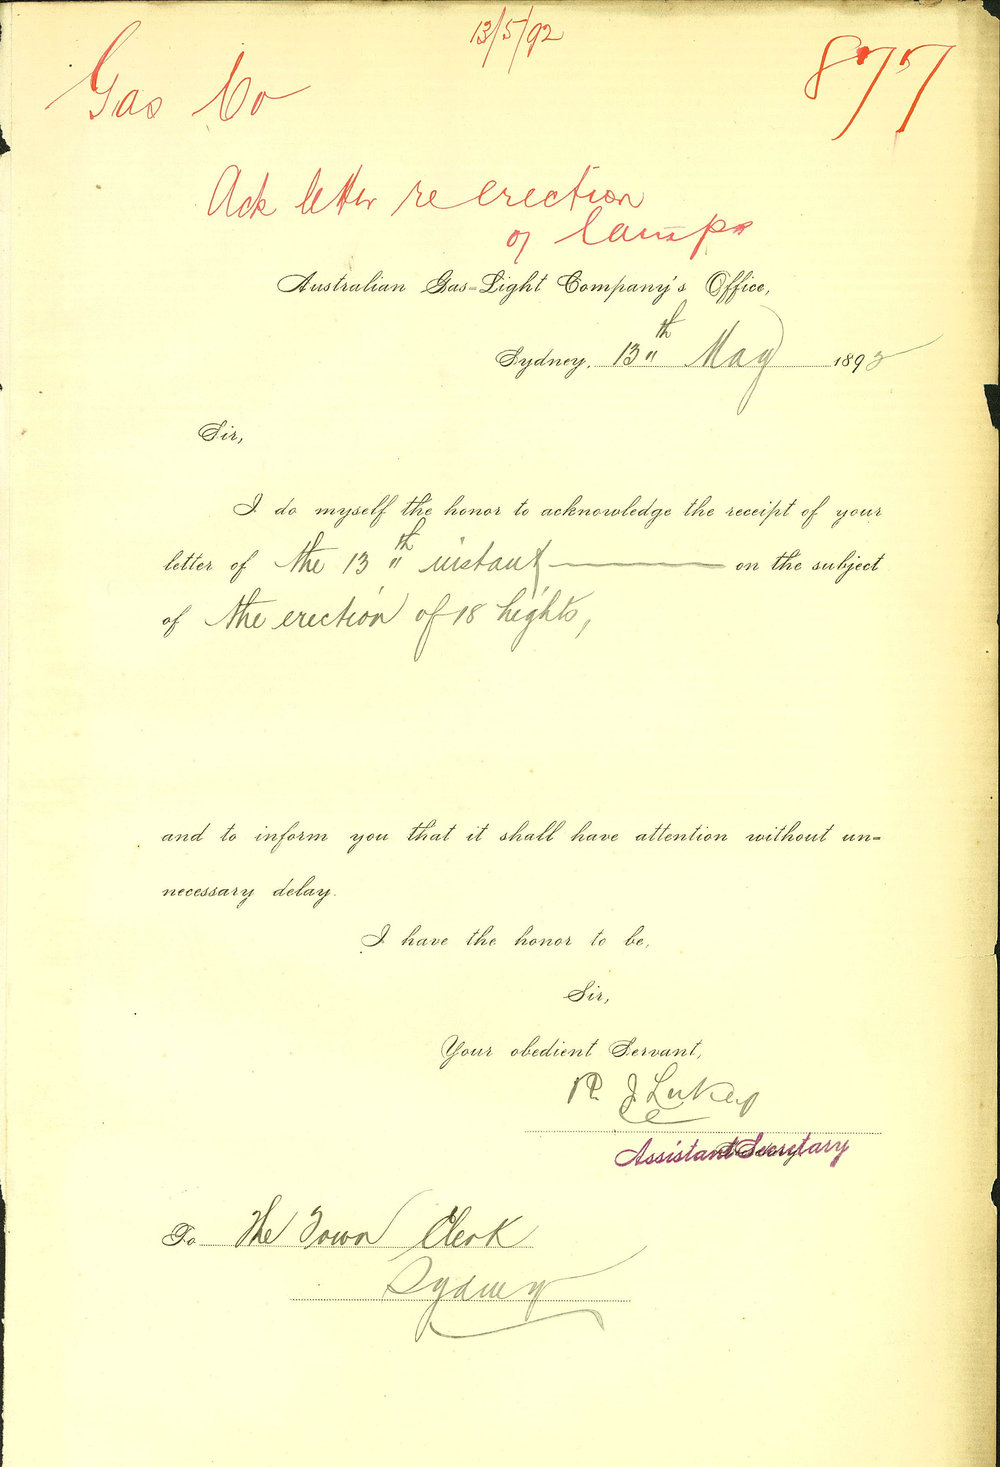 13/5/92
877
Gas Co
Ack letter re erection
of lamps
Australian Gas-Light Company's Office,
Sydney, 13th May 1892
Sir,
I do myself the honor to acknowledge the receipt of your
letter of the 13th instant on the subject
of the erection of 18 lights,
and to inform you that it shall have attention without un=
necessary delay.
I have the honor to be,
Sir,
Your obedient Servant,
R. J. Lukey
Assistant Secretary
To The Town Clerk
Sydney